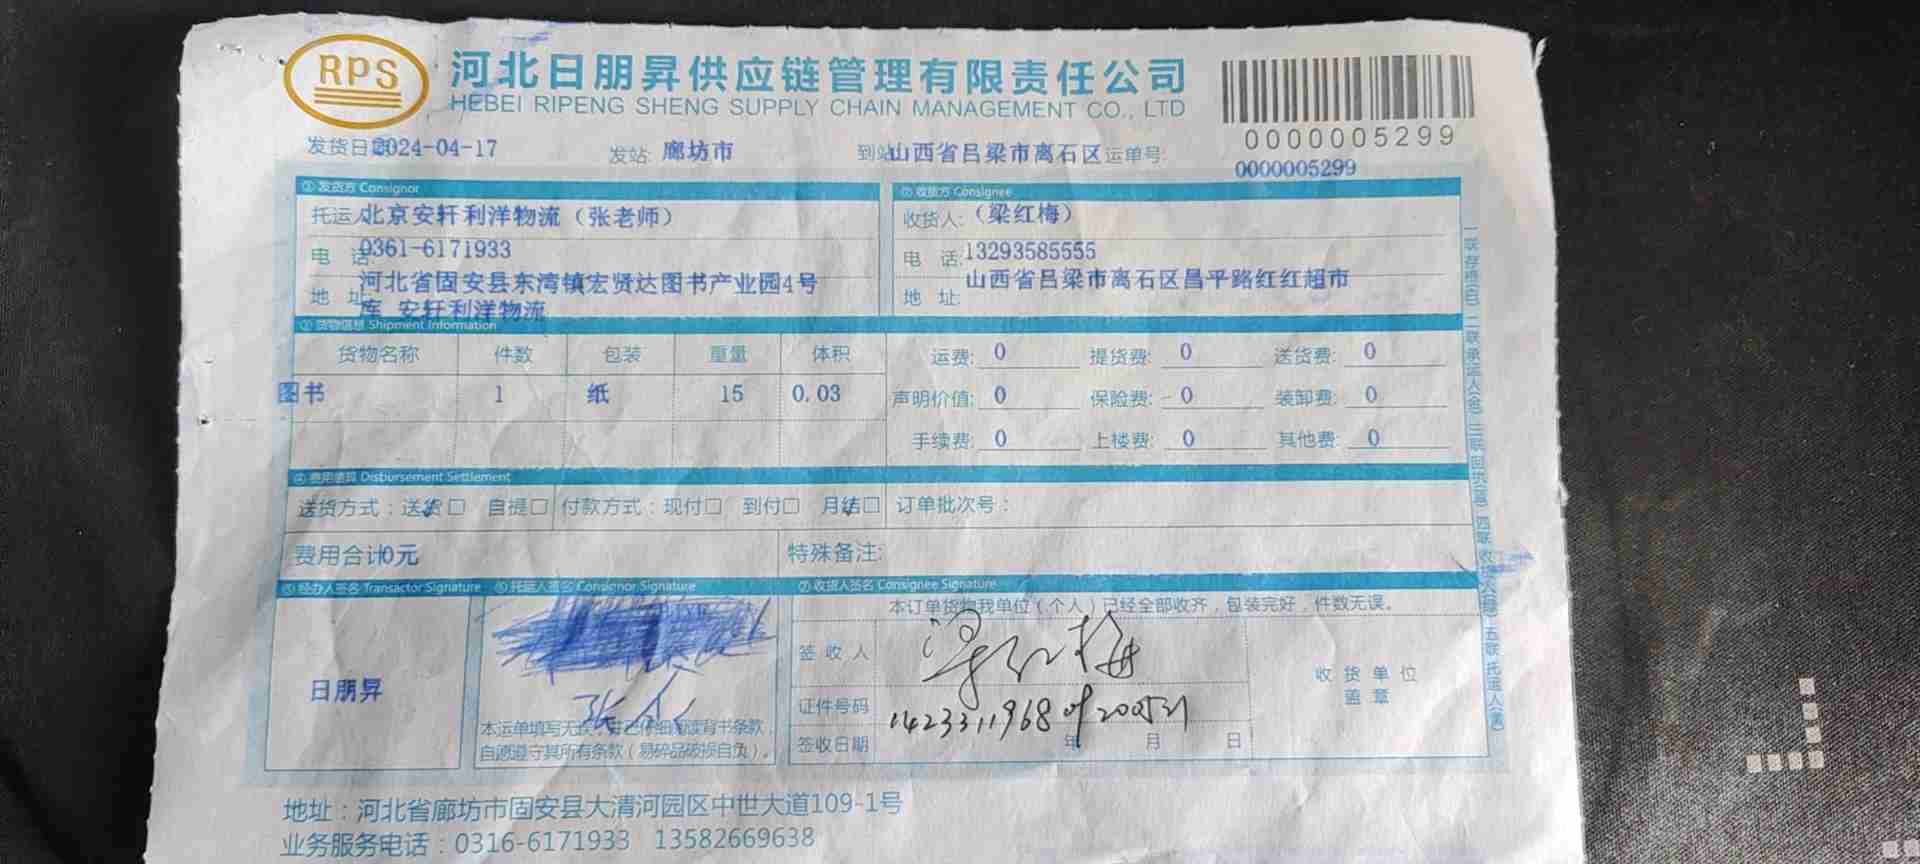 RPS
河北日朋昇供应链管理有限责任公司
HEBEI RIPENG SHENG SUPPLY CHAIN MANAGEMENT CO., LTD
0000005299
发货日 2024-04-17 发站: 廊坊市 到站 山西省吕梁市离石区 运单号: 0000005299
① 发货方 Consignor ② 收货方 Consignee
托运人 北京安轩利洋物流（张老师） 收货人: （梁红梅）
电 话 0361-6171933 电 话: 13293585555
地 址 河北省固安县东湾镇宏贤达图书产业园4号 地 址: 山西省吕梁市离石区昌平路红红超市
库 安轩利洋物流
③ 货物信息 Shipment Information
货物名称 件数 包装 重量 体积 运费: 0 提货费: 0 送货费: 0
图书 1 纸 15 0.03 声明价值: 0 保险费: 0 装卸费: 0
手续费: 0 上楼费: 0 其他费: 0
④ 费用结算 Disbursement Settlement
送货方式：送货□ 自提□ 付款方式：现付□ 到付□ 月结□ 订单批次号：
费用合计 0元 特殊备注:
⑤ 经办人签名 Transactor Signature ⑥ 托运人签名 Consignor Signature ⑦ 收货人签名 Consignee Signature
本订单货物我单位（个人）已经全部收齐，包装完好，件数无误。
签收人 梁红梅
收货单位
盖章
日朋昇
证件号码
本运单填写无误，并已仔细阅读背书条款，
自愿遵守其所有条款（易碎品破损自负）。
签收日期 年 月 日
一联存根(白) 二联承运人(红) 三联回执(蓝) 四联收货人(绿) 五联托运人(黄)
地址：河北省廊坊市固安县大清河园区中世大道109-1号
业务服务电话：0316-6171933 13582669638